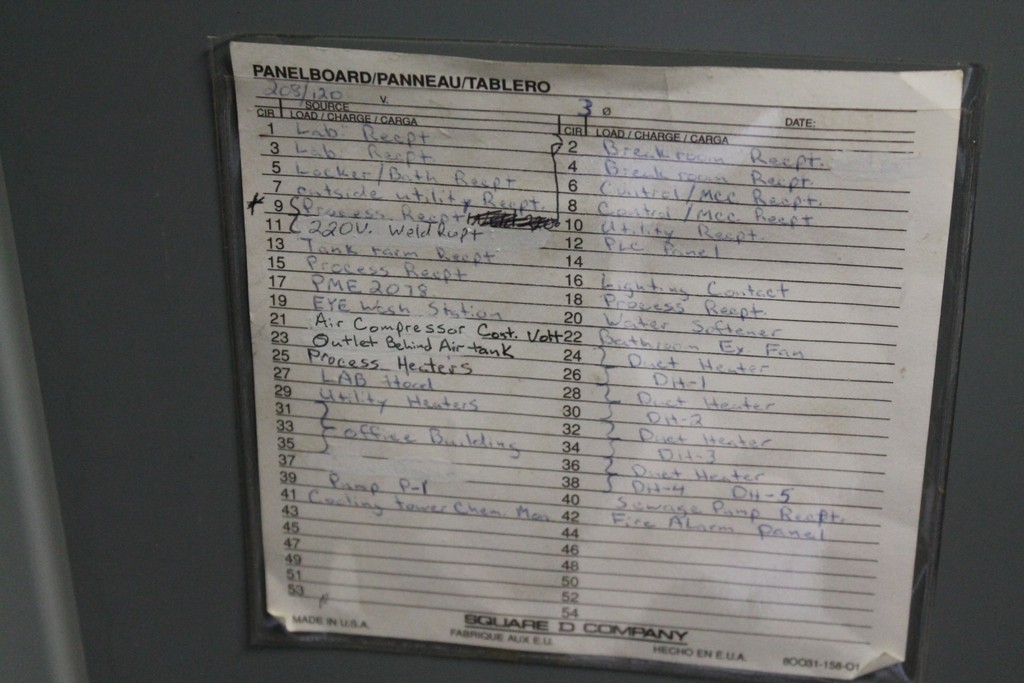 PANELBOARD/PANNEAU/TABLERO
208/120 V. 3 Ø
SOURCE DATE:
CIR LOAD / CHARGE / CARGA CIR LOAD / CHARGE / CARGA
1 Lab Recpt 2 Breakroom Recpt.
3 Lab Recpt 4 Breakroom Recpt.
5 Locker/Bath Recpt 6 Control/MCC Recpt.
7 outside utility Recpt. 8 Control/MCC Recpt
* 9 Process Recpt 10 Utility Recpt.
11 220V. Weld Rupt 12 PLC Panel
13 Tank Farm Recpt 14
15 Process Recpt 16 Lighting Contact
17 PME 2078 18 Process Recpt.
19 EYE Wash Station 20 Water Softener
21 Air Compressor Cont. Volt 22 Bathroom Ex. Fan
23 Outlet Behind Air tank 24 Duct Heater
25 Process Heaters 26 DH-1
27 LAB Hood 28 Duct Heater
29 Utility Heaters 30 DH-2
31 32 Duct Heater
33 office Building 34 DH-3
35 36 Duct Heater
37 38 DH-4 DH-5
39 Pump P-1 40 Sewage Pump Recpt.
41 Cooling tower Chem. Mon. 42 Fire Alarm Panel
43 44
45 46
47 48
49 50
51 52
53 54
MADE IN U.S.A. SQUARE D COMPANY
FABRIQUE AUX E.U. HECHO EN E.U.A. 80031-158-01